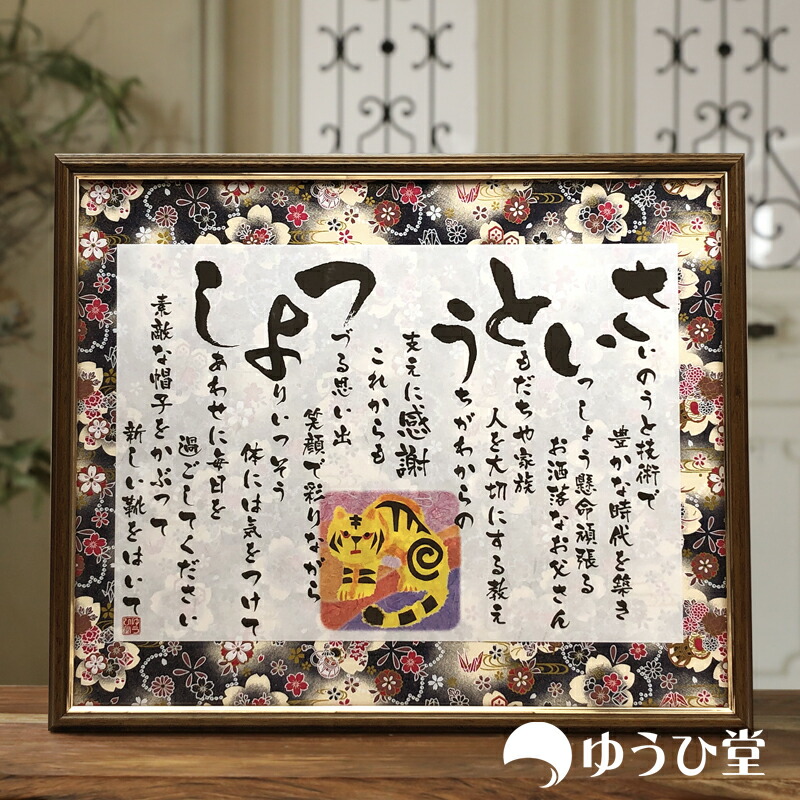 さいのうと技術で
豊かな時代を築き
いっしょう懸命頑張る
お洒落なお父さん
ともだちや家族
人を大切にする教え
うちがわからの
支えに感謝
これからも
つづる思い出
笑顔で彩りながら
よりいっそう
体には気をつけて
しあわせに毎日を
過ごしてください
素敵な帽子をかぶって
新しい靴をはいて
ゆうひ堂